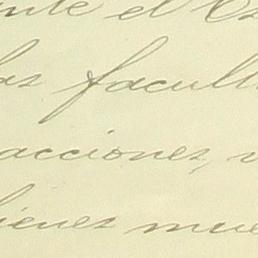 el
las facult
acciones,
bienes mue